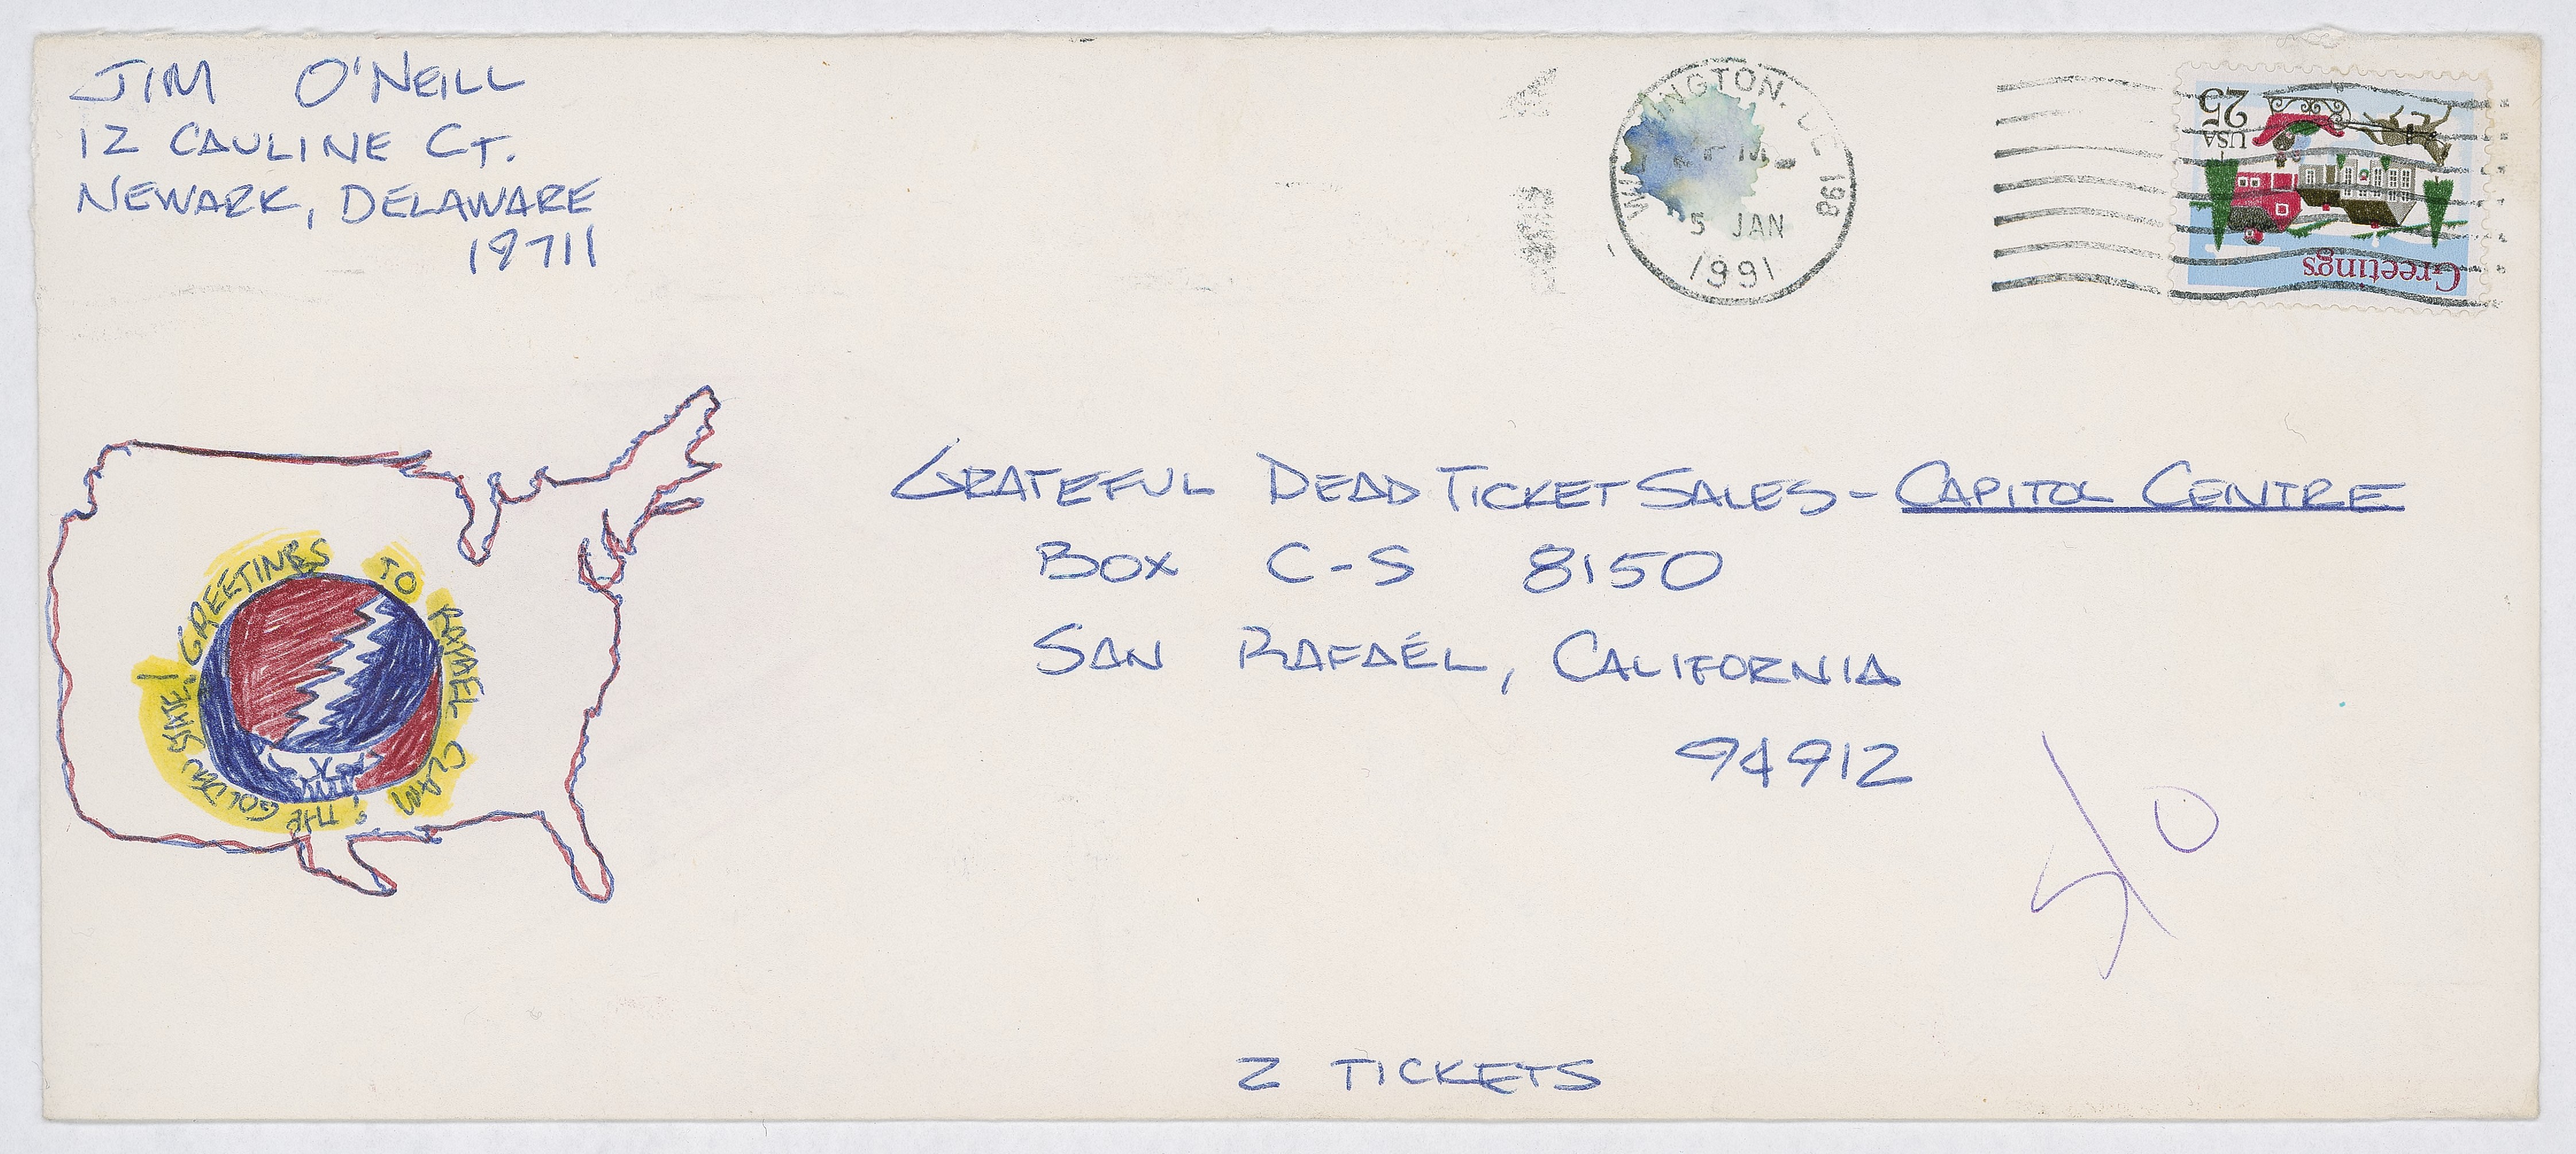 JIM O'NEILL
12 CAULINE CT.
NEWARK, DELAWARE
19711
INGTON, DE 198
5 JAN
1991
25
USA
Greetings
GRATEFUL DEAD TICKET SALES - CAPITOL CENTRE
BOX C-S 8150
SAN RAFAEL, CALIFORNIA
94912
GREETINGS TO CLAM THE GOLDEN STATE!
2 TICKETS